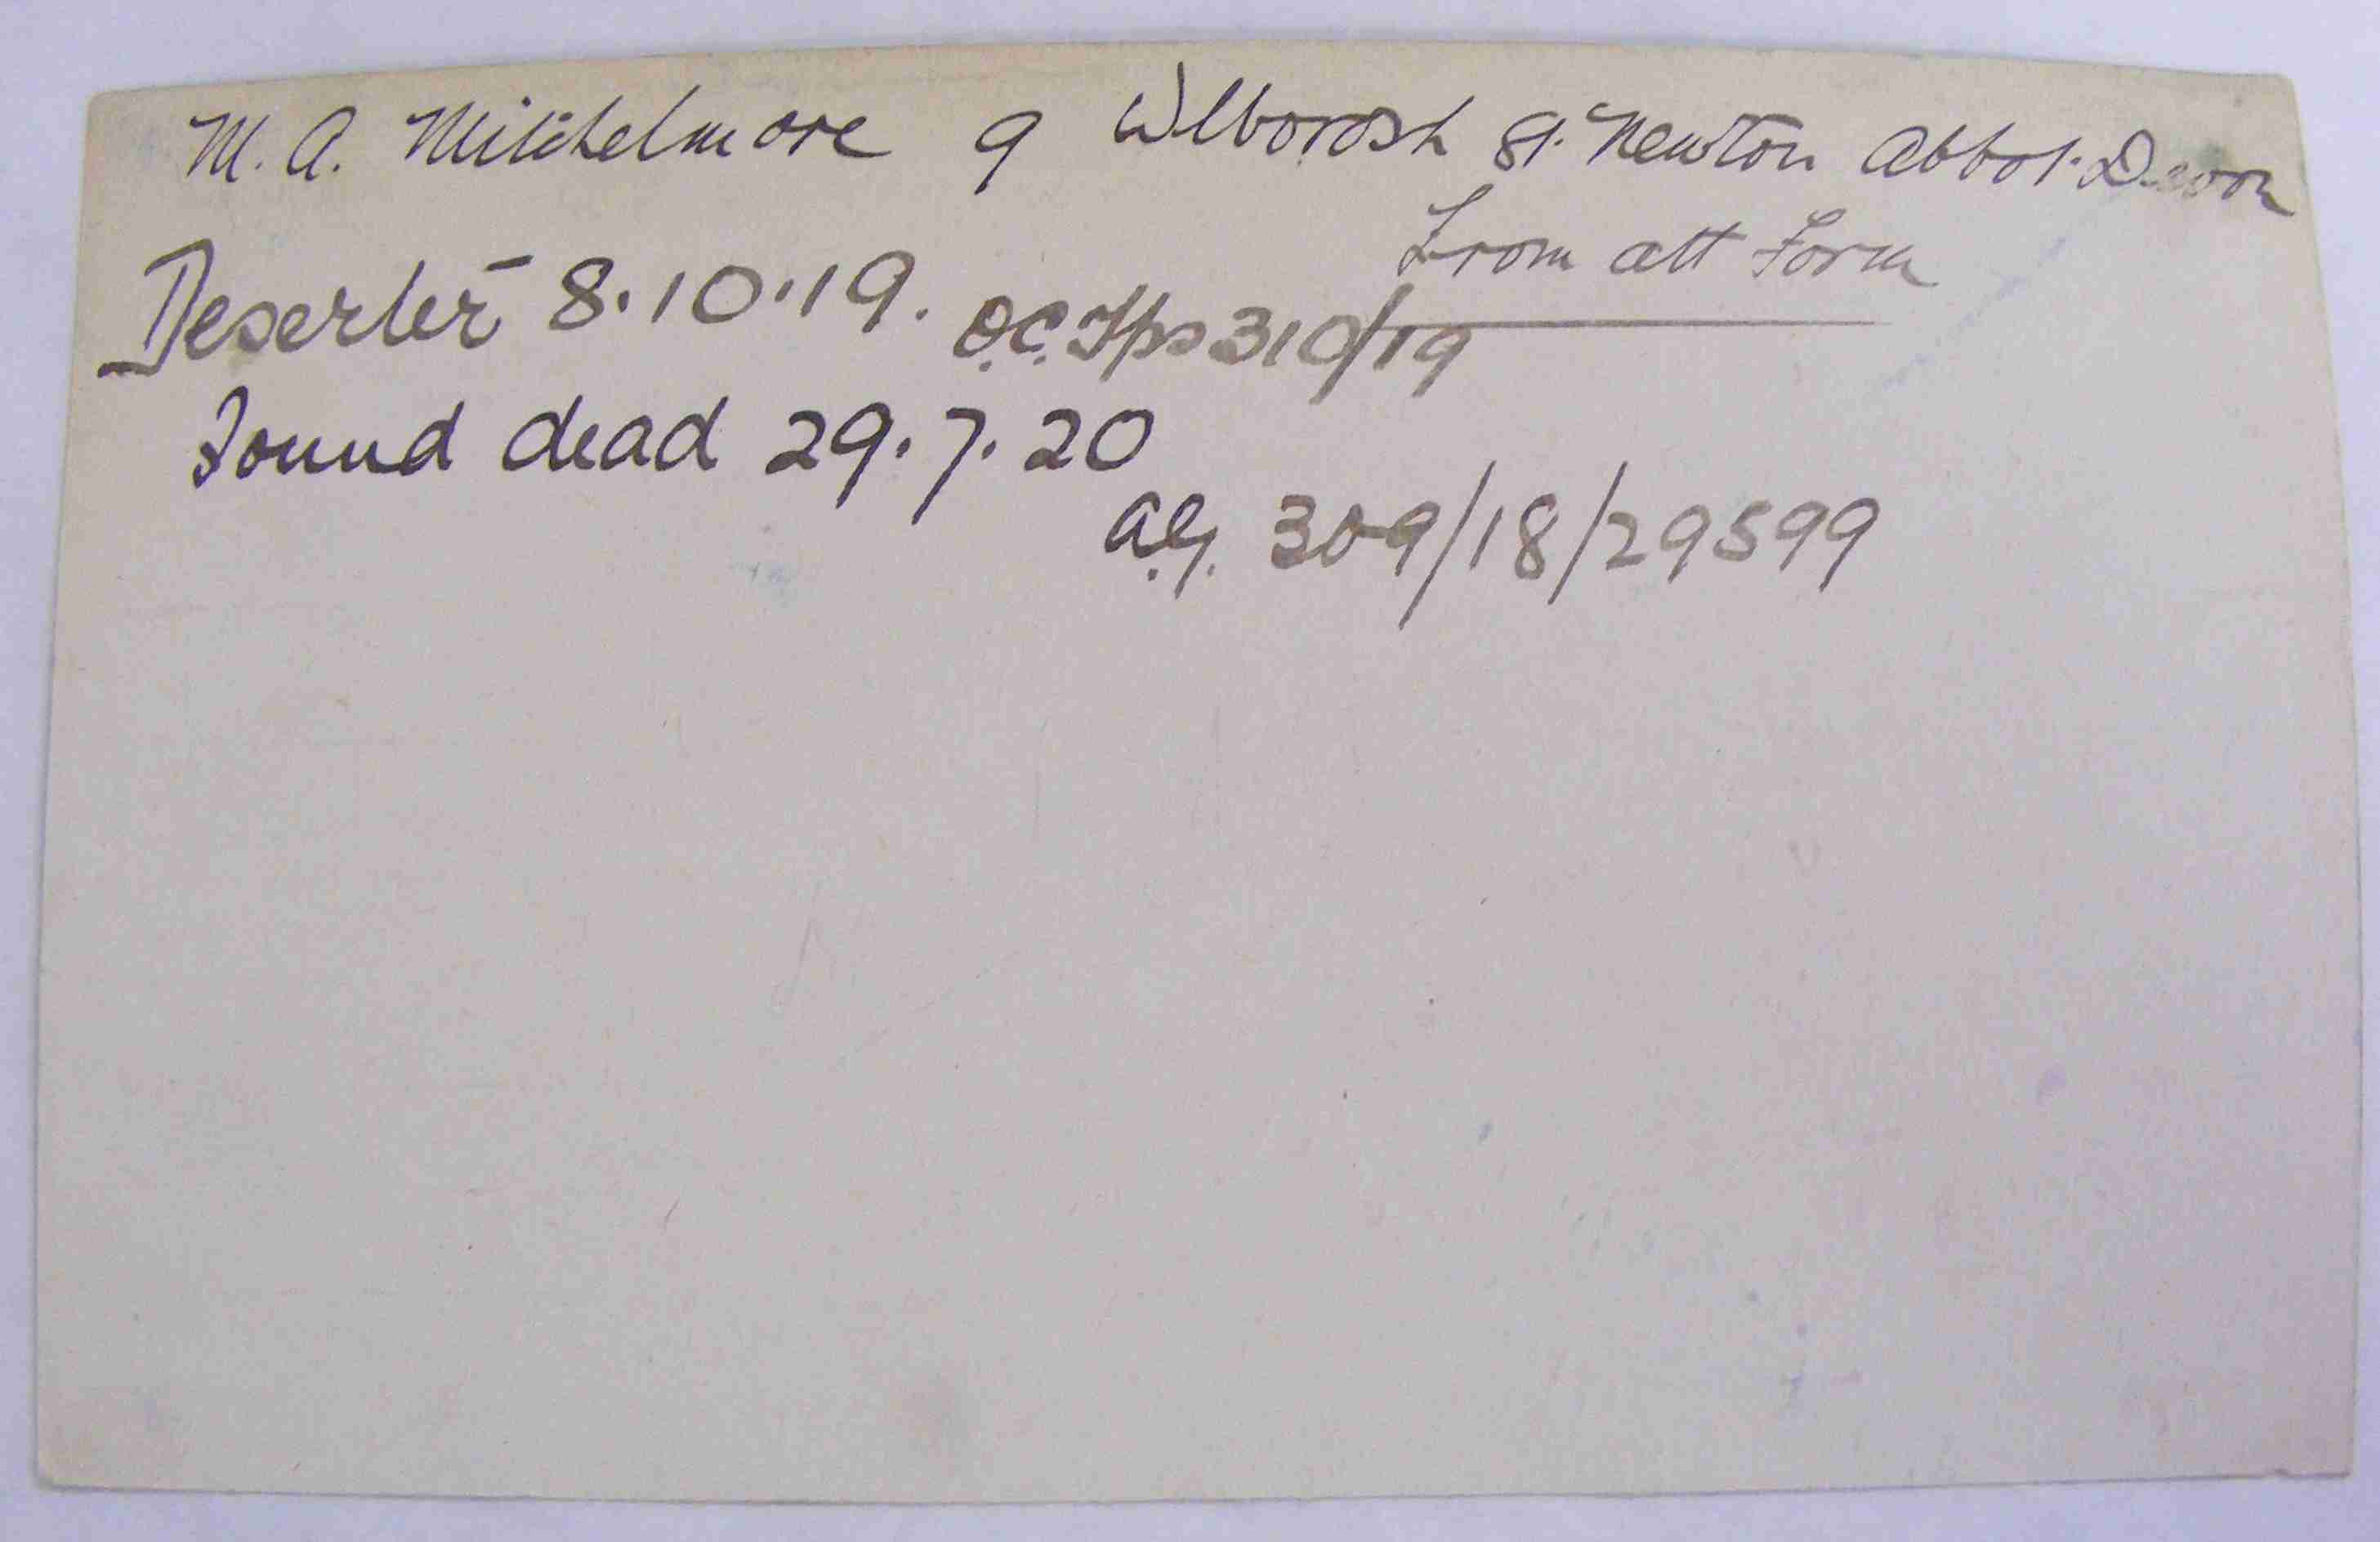 M. A. Mitchelmore 9 Wlborosh St. Newton Abbot. Devon
From att Form
Deserter 8.10.19. O.C. Tps 310/19
Found dead 29.7.20
A.G. 309/18/29599